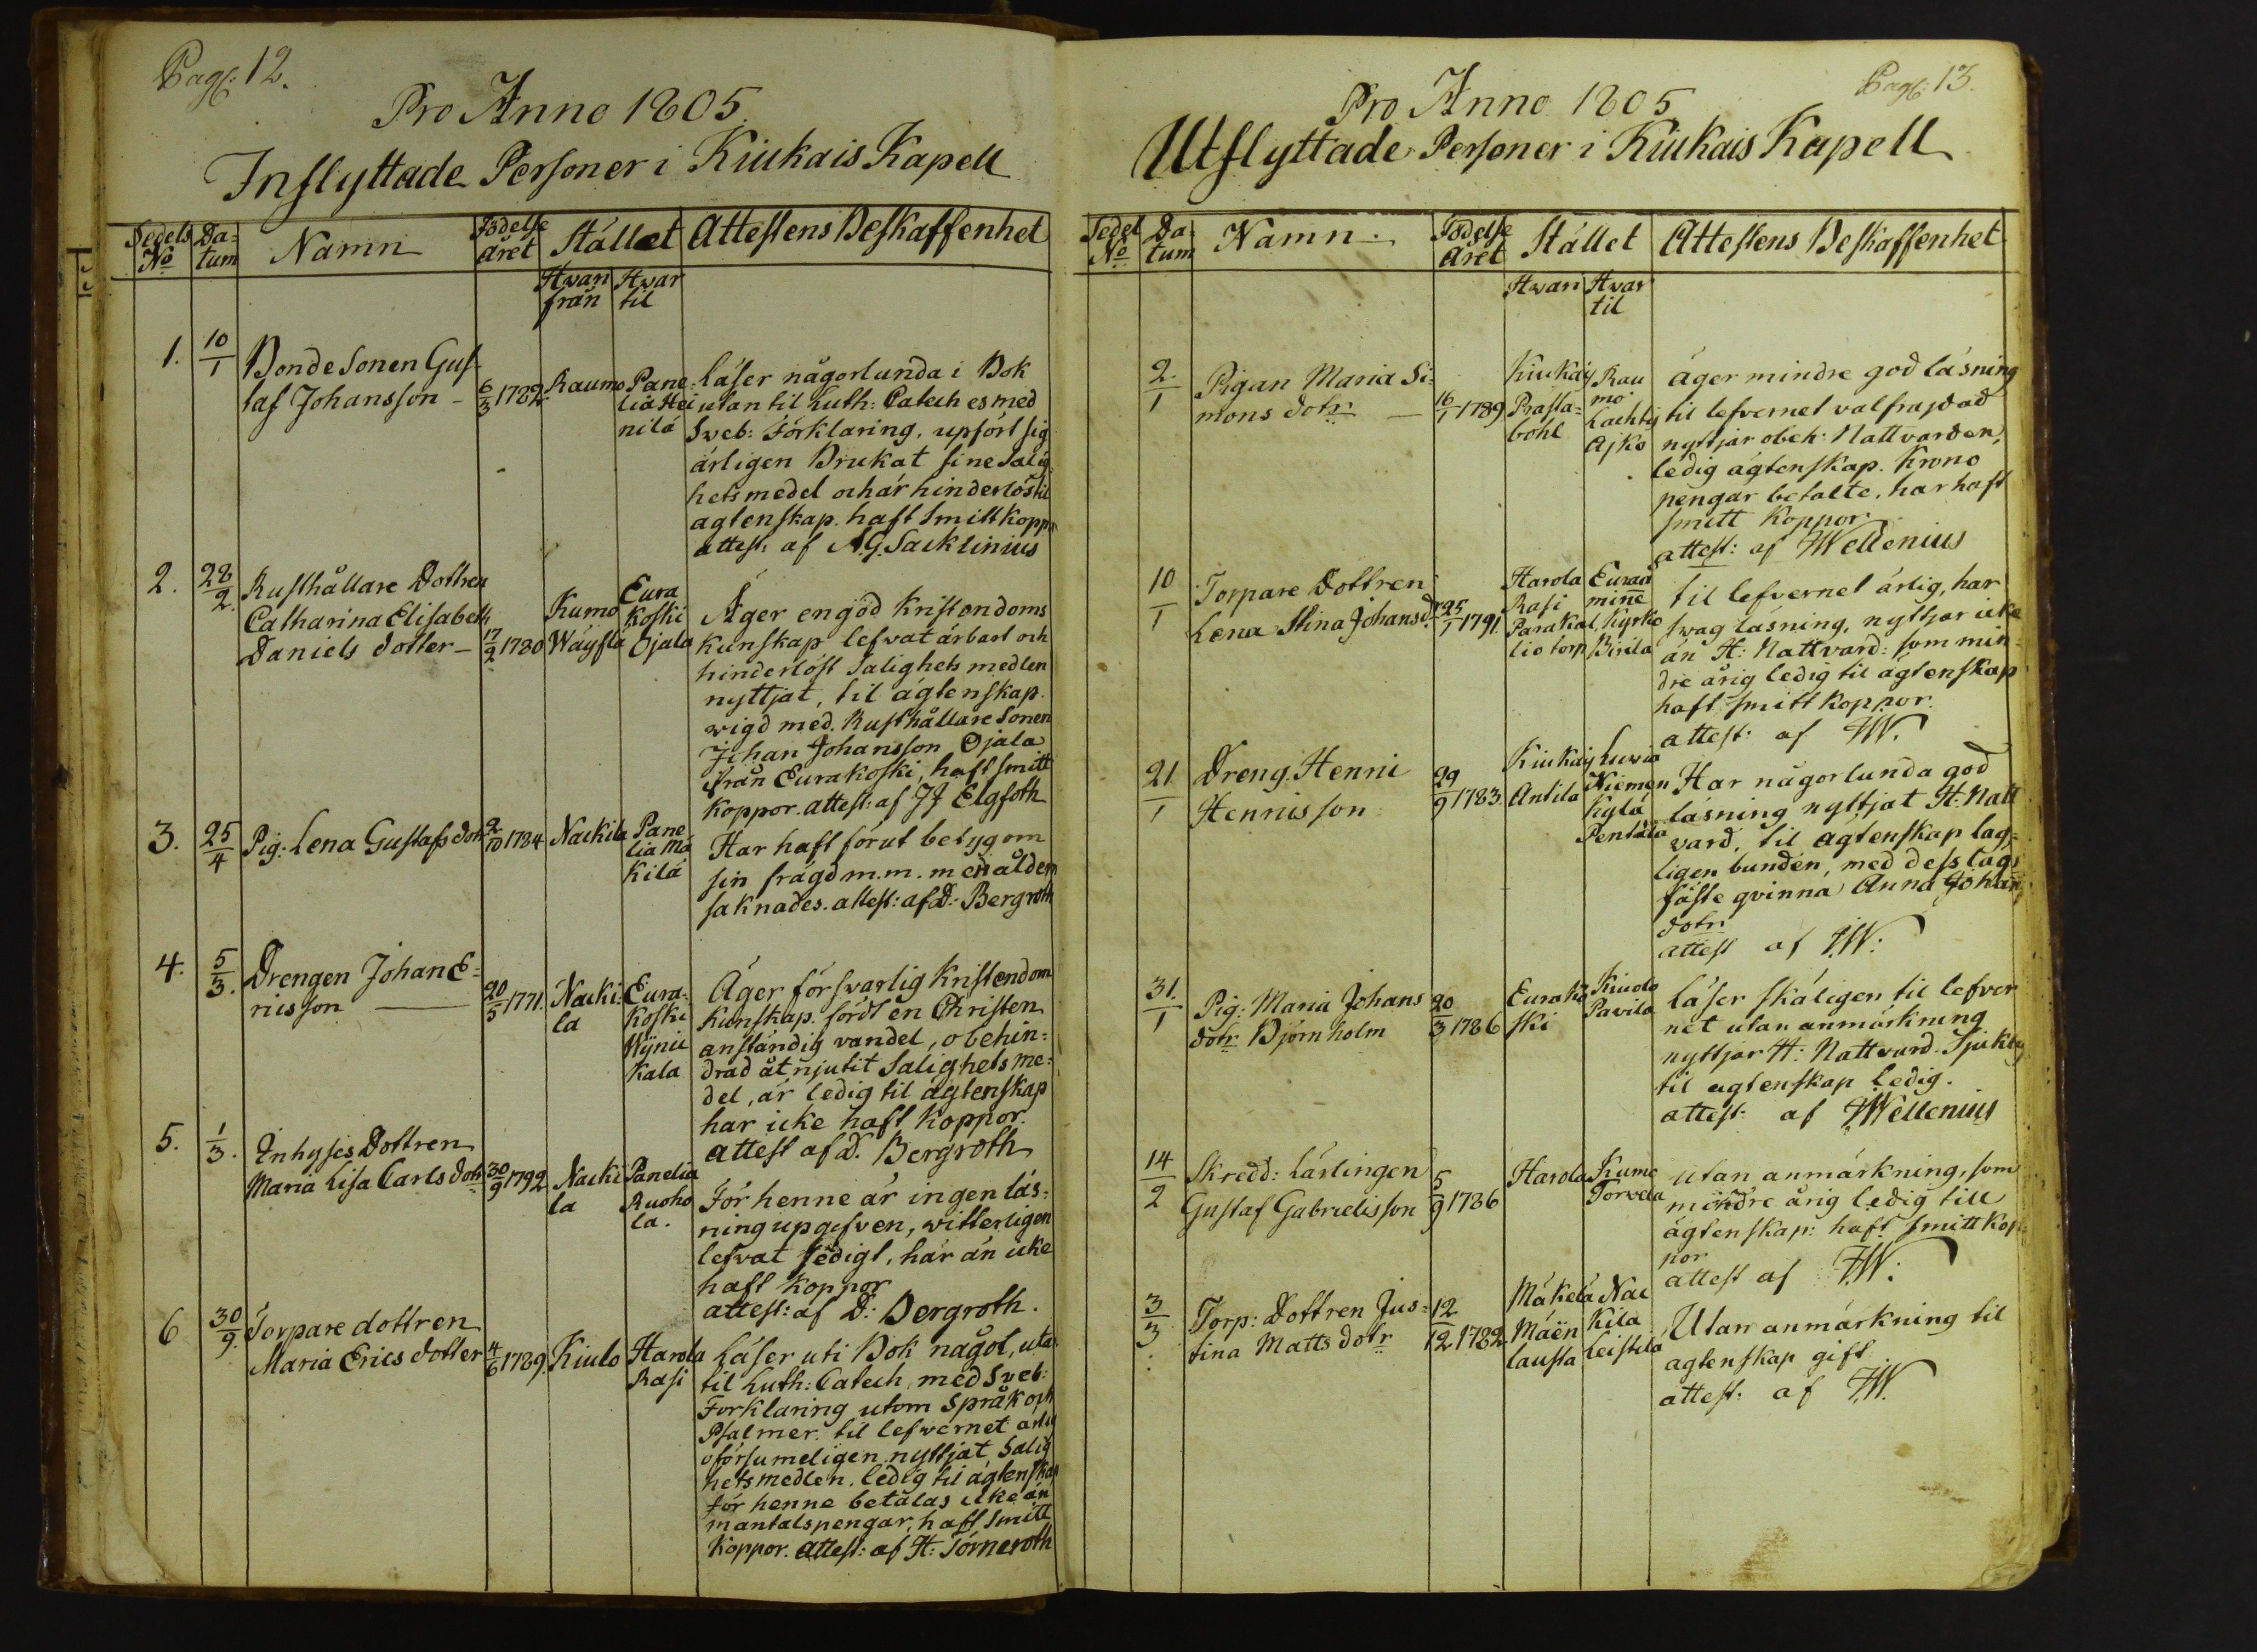 Pag: 12.
Pro Anno 1805.
Inflyttade Personer i Kiukais Kapell
Sedels No
Da-tum
Namn
Födelse året
Stället
Attestens Beskaffenhet
Hwar från
Hwar til
1.
10/1
Bonde Sonen Gus-
taf Johansson –
6/3 1782
Raumo
Pane-
lia Hei
nilä
läser någorlunda i Bok
utan til Luth: Catech es med
Sveb: Förklaring, upfört sig
ärligen Brukat sine Salig
hets medel och är hinderlös til
ägtenskap. haft Smitt koppor
attest: af N.G. Sacklinius
2.
28/2.
Rusthållare Dottren
Catharina Elisabeth
Daniels dotter –
17/2 1780
Kumo
Wäyfla
Eura
koski
Ojala
Äger en god Kristendoms
kunskap lefvat ärbart och
hinderlöst Salighets medlen
nyttjat, til ägtenskap.
wigd med Rusthållare Sonen
Johan Johansson Ojala
från Eurakoski, haft smitt
koppor. attest: af JJ Elgfoth
3.
25/4
Pig: Lena Gustafs dotr
2/10 1784
Nackila
Pane
lia Mä
kilä
Har haft förut betyg om
sin frägd m.m. men åldern
saknades. attest: af D. Bergroth
4.
5/3.
Drengen Johan E-
ricsson ——
20/5 1771.
Nacki-
la
Eura-
koski
Wÿnic
kala
Äger försvarlig Kristendom
kunskap. fördt en Christen
anständig vandel, obehin-
drad åtnjutit Salighets me-
del, är ledig til ägtenskap
har icke haft koppor.
attest af D. Bergroth
5.
1/3.
Inhyses Dottren
Maria Lisa Carls dotr
30/9 1792
Nacki
la
Panelia
Ruoho
la.
För henne är ingen läs-
ning upgifven, witterligen
lefvat sedigt, har än icke
haft koppor
attest: af D: Bergroth.
6
30/9.
Torpare dottren
Maria Erics dotter
4/6 1789.
Kiulo
Harola
Rasi
Läser uti Bok något, utan
til Luth: Catech, med Sveb:
Forklaring utom Språk och
Psalmer. til lefvernet ärlig
oförsumeligen nyttjat Salig
hets medlen. ledig til ägtenskap
för henne betalas icke än
mantalspengar, haft Smitt
koppor. attest: af H: Törneroth
Pag: 13.
Pro Anno 1805
Utflyttade Personer i Kiukais Kapell
Sedel No
Da-tum
Namn.
Födelse året
Stället
Attestens Beskaffenhet
Hwari
Hwar til
2/1
Pigan Maria Si-
mons dotr —
16/1 1789
Kiukais
Prasta-
bohl
Rau
mo
Lachtis
Ajko
äger mindre god läsning
til lefvernet valfrajdad
nyttjar obeh: Nattvarden,
ledig ägtenskap. Krono
pengar betalte, har haft
smitt koppor
attest: af JWellenius
10/1
Torpare Dottren
Lena Stina Johansdr
25/1 1791.
Harola
Rasi
Parakal
lio torp
Eura
minne
Kyrko
Birila
til lefvernet ärlig, har
swag läsning, nyttjar icke
än H: Nattvard: som min-
dre årig ledig til ägtenskap
haft smitt koppor.
attest: af JW.
21/1
Dreng. Henric
Henricsson
29/9 1783.
Kiukais
Antila
Luvia
Niemen
kylä
Pentala
Har någorlunda god
läsning nyttjat H: Natt
vard, til ägtenskap lag-
ligen bunden, med dess lag-
fäste qvinna Anna Johans
dotr
attest af JW:
31./1
Pig: Maria Johans
dotr Björnholm
20/3 1786
Eurako
ski
Kiuolo
Pavila
läser skäligen til lefver
net utan anmärkning
nyttjar H: Nattvard. Sjuklig
til ägtenskap ledig.
attest: af JWellenius
14/2
Skredd: Lärlingen
Gustaf Gabrielsson
5/9 1786
Harola
Kumo
Torvela
utan anmärkning, som
mindre årig ledig till
ägtenskap: haft smitt kop-
por
attest af JW:
3/3
Torp: Dottren Jus-
tina Matts dotr
12/12 1782
Mäkelä
Mäen
lausta
Nac
kila
Leistilä
Utan anmärkning til
ägtenskap gift
attest: af JW.